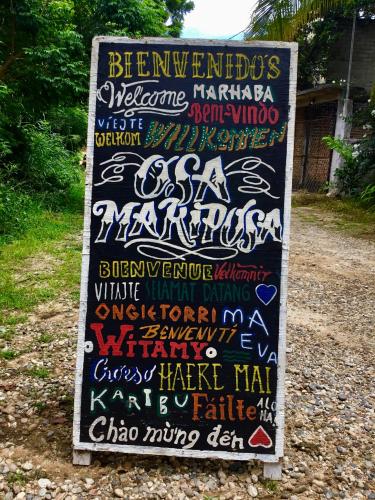 BIENVENIDOS
Welcome MARHABA
Bem-vindo
VÍTEJTE
WELKOM WILLKOMMEN
OSA
MARIPOSA
BIENVENUE Velkommin
VITAJTE SELAMAT DATANG
ONGIETORRI
BENVENUTI
MAEVA
WITAMY
Croeso HAERE MAI
KARIBU Fáilte ALOHA
Chào mừng đến